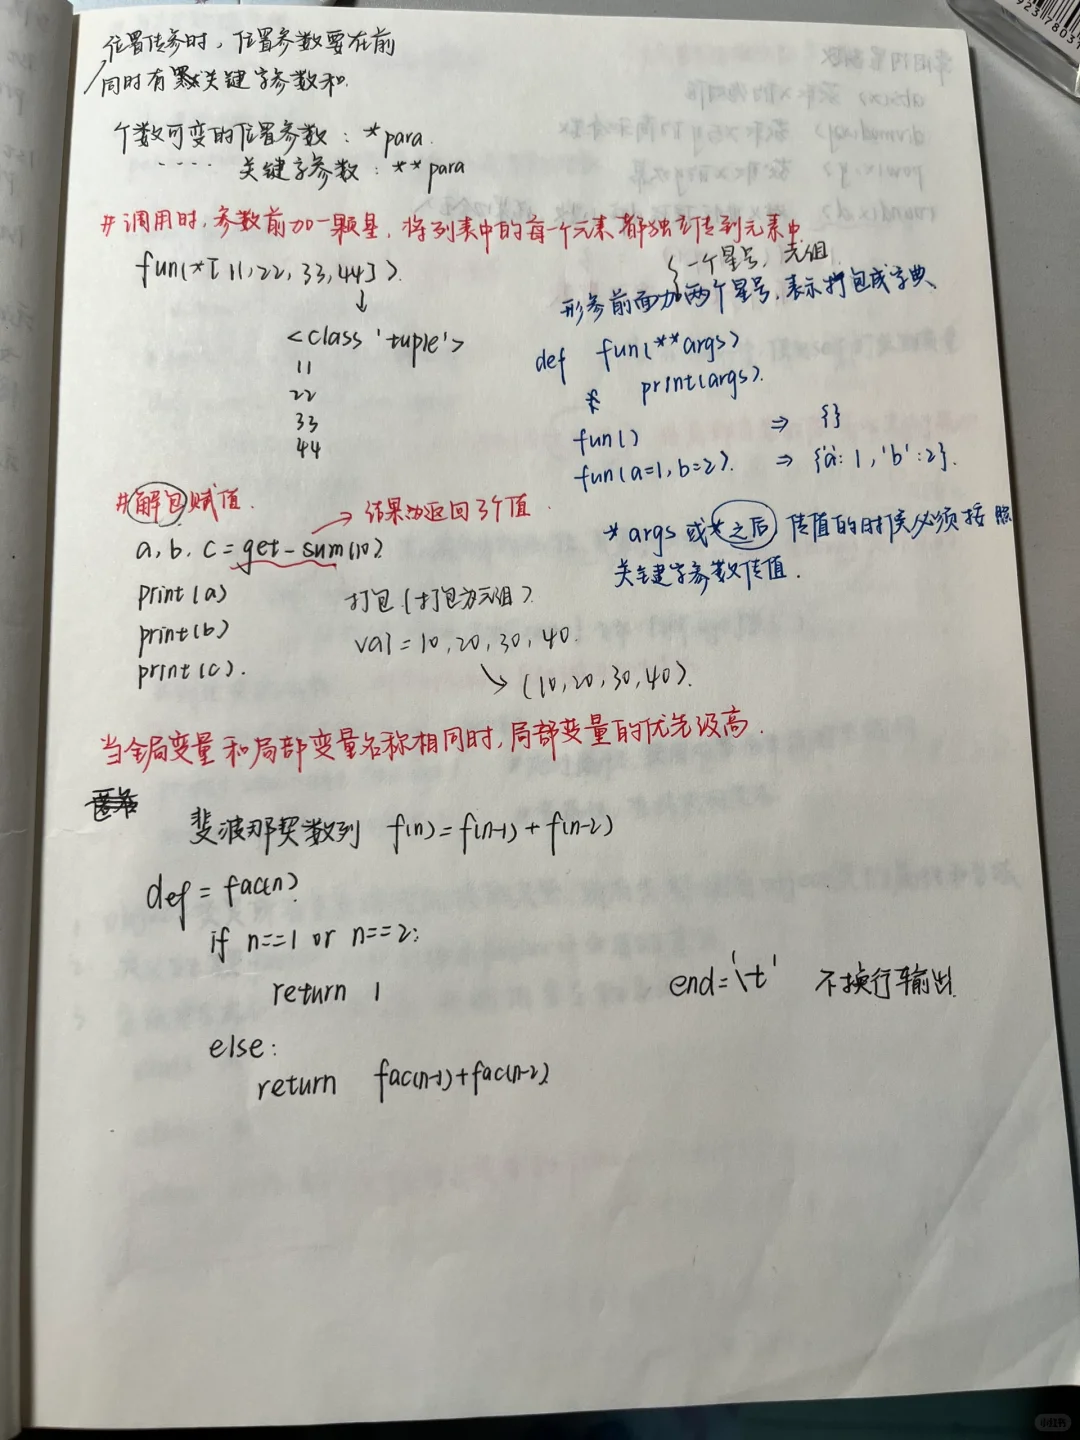 位置传参时，位置参数要在前
同时有默认关键字参数和
个数可变的位置参数：*para.
‥‥ 关键字参数：**para
#调用时，参数前加一颗星，将列表中的每一个元素都独立传到元素中
fun(*[11,22,33,44]).
↓
<class 'tuple'>
11
22
33
44
一个星号，元组
形参前面加两个星号，表示打包成字典
def fun(**args)
print(args).
fun() ⇒ {}
fun(a=1,b=2). ⇒ {'a':1,'b':2}.
*args或*之后 传值的时候必须按照
关键字参数传值.
#解包赋值.
→结果为返回3个值
a,b,c=get-sum(10)
print(a)
print(b)
print(c).
打包(打包为元组)
val=10,20,30,40.
↘(10,20,30,40).
当全局变量和局部变量名称相同时,局部变量的优先级高.
斐波那契数列 f(n)=f(n-1)+f(n-2)
def=fac(n)
if n==1 or n==2:
return 1
else:
return fac(n-1)+fac(n-2)
end='\t' 不换行输出.
小红书